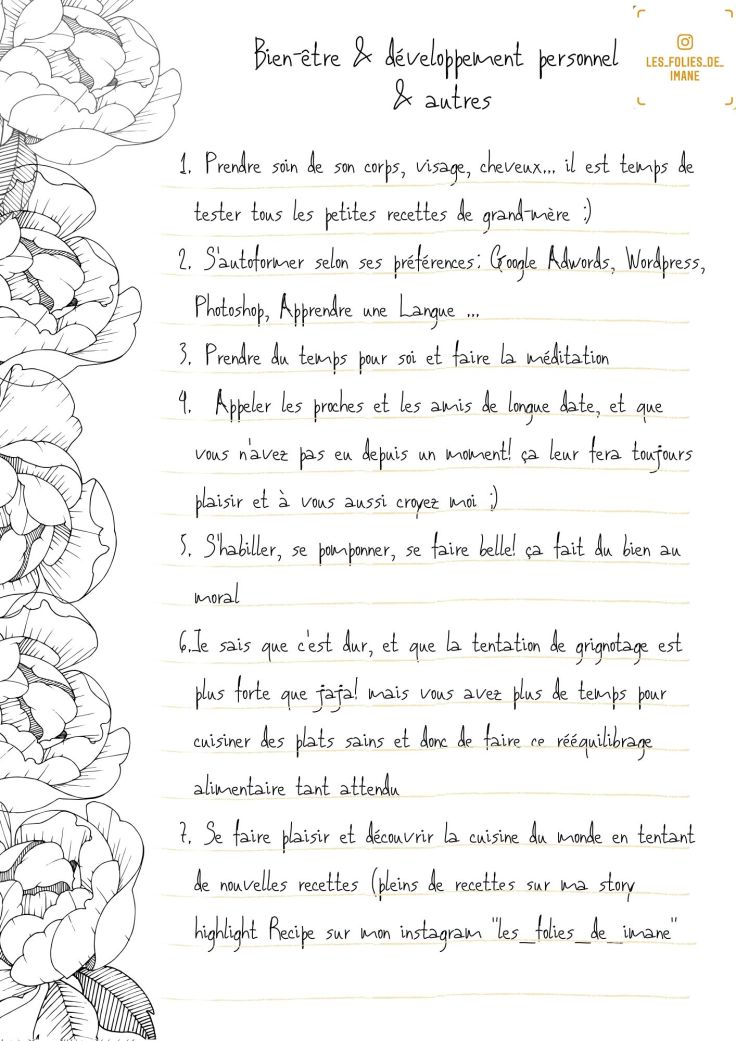 Bien-être & développement personnel
& autres
LES_FOLIES_DE_
IMANE
1. Prendre soin de son corps, visage, cheveux... il est temps de
tester tous les petites recettes de grand-mère :)
2. S'autoformer selon ses préférences: Google Adwords, Wordpress,
Photoshop, Apprendre une Langue ...
3. Prendre du temps pour soi et faire la méditation
4. Appeler les proches et les amis de longue date, et que
vous n'avez pas eu depuis un moment! ça leur fera toujours
plaisir et à vous aussi croyez moi ;)
5. S'habiller, se pomponner, se faire belle! ça fait du bien au
moral
6.Je sais que c'est dur, et que la tentation de grignotage est
plus forte que jaja! mais vous avez plus de temps pour
cuisiner des plats sains et donc de faire ce rééquilibrage
alimentaire tant attendu
7. Se faire plaisir et découvrir la cuisine du monde en tentant
de nouvelles recettes (pleins de recettes sur ma story
highlight Recipe sur mon instagram "les_folies_de_imane"